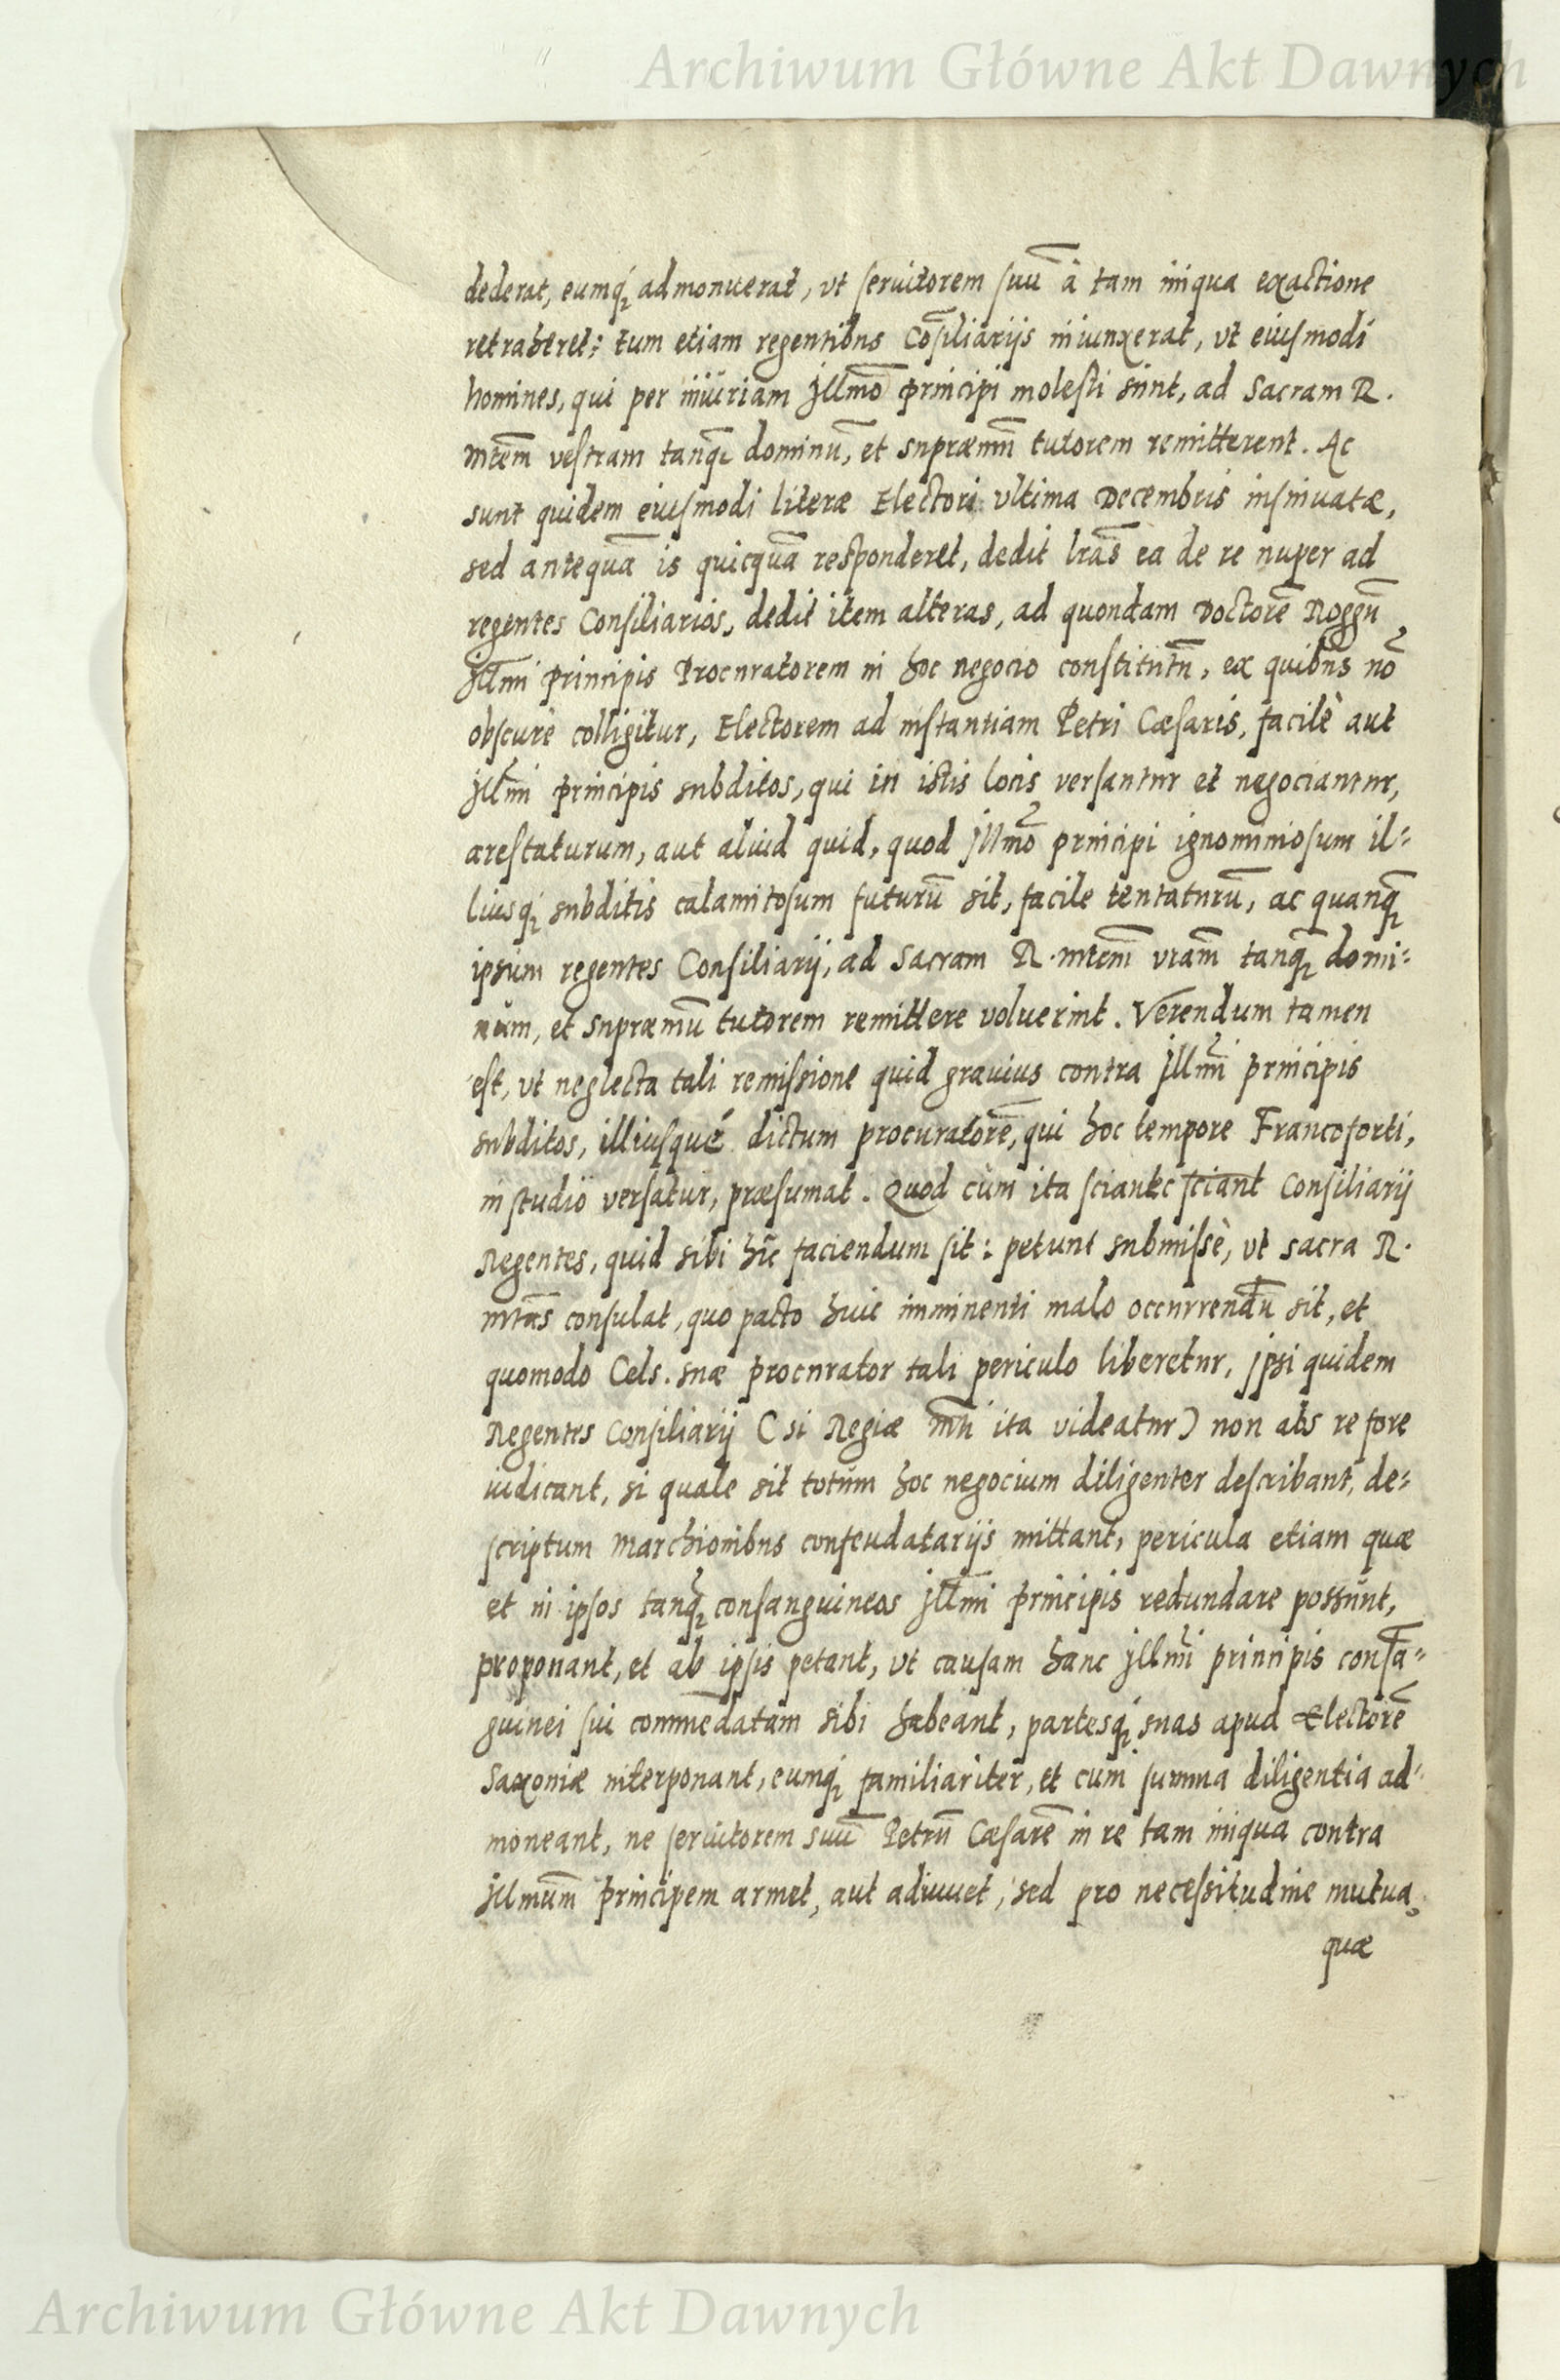 Archiwum Główne Akt Dawnych
dederat, eumq; admonuerat, vt seruitorem suũ à tam iniqua exactione
retraheret: tum etiam regentibus Cõsiliarijs iniunxerat, vt eiusmodi
homines, qui per iniuriam Jllmõ Principi molesti sunt, ad Sacram R.
Mtẽm vestram tanq̃ dominũ, et supræmũ tutorem remitterent. Ac
sunt quidem eiusmodi literæ Electori vltima Decembris insinuatæ,
sed antequã is quicquã responderet, dedit lrãs ea de re nuper ad
regentes Consiliarios, dedit item alteras, ad quondam Doctorẽ Roggũ
Jllmi Principis Procuratorem in hoc negocio constitutũ, ex quibus nõ
obscurè colligitur, Electorem ad instantiam Petri Cæsaris, facilè aut
Jllmi Principis subditos, qui in istis locis versantur et negociantur,
arestaturum, aut aliud quid, quod Jllmõ Principi ignominiosum il-
liusq; subditis calamitosum futurũ sit, facile tentaturũ, ac quanq̃
ipsum regentes Consiliarij, ad Sacram R. Mtẽm vrãm tanq̃ domi-
num, et supræmũ tutorem remittere voluerint. Verendum tamen
est, vt neglecta tali remissione quid grauius contra Jllmi Principis
subditos, illiusque dictum procuratorẽ, qui hoc tempore Francoforti,
in studio versatur, præsumat. Quod cùm ita sciantc sciant Consiliarij
Regentes, quid sibi hĩc faciendum sit: petunt submissè, vt sacra R.
Mtãs consulat, quo pacto huic imminenti malo occurrendũ sit, et
quomodo Cels. suæ Procurator tali periculo liberetur, Jpsi quidem
Regentes Consiliarij (si Regiæ Mti ita videatur) non abs re fore
iudicant, si quale sit totum hoc negocium diligenter describant, de-
scriptum Marchionibus confeudatarijs mittant, pericula etiam quæ
et in ipsos tanq̃ consanguineos Jllmi Principis redundare possunt,
proponant, et ab ipsis petant, vt causam hanc Jllmi Principis consã-
guinei sui commẽdatam sibi habeant, partesq; suas apud Electorẽ
Saxoniæ interponant, eumq; familiariter, et cum summa diligentia ad-
moneant, ne seruitorem suũ Petrũ Cæsarẽ in re tam iniqua contra
Jllmũm Principem armet, aut adiuuet, sed pro necessitudine mutua,
quæ
Archiwum Główne Akt Dawnych